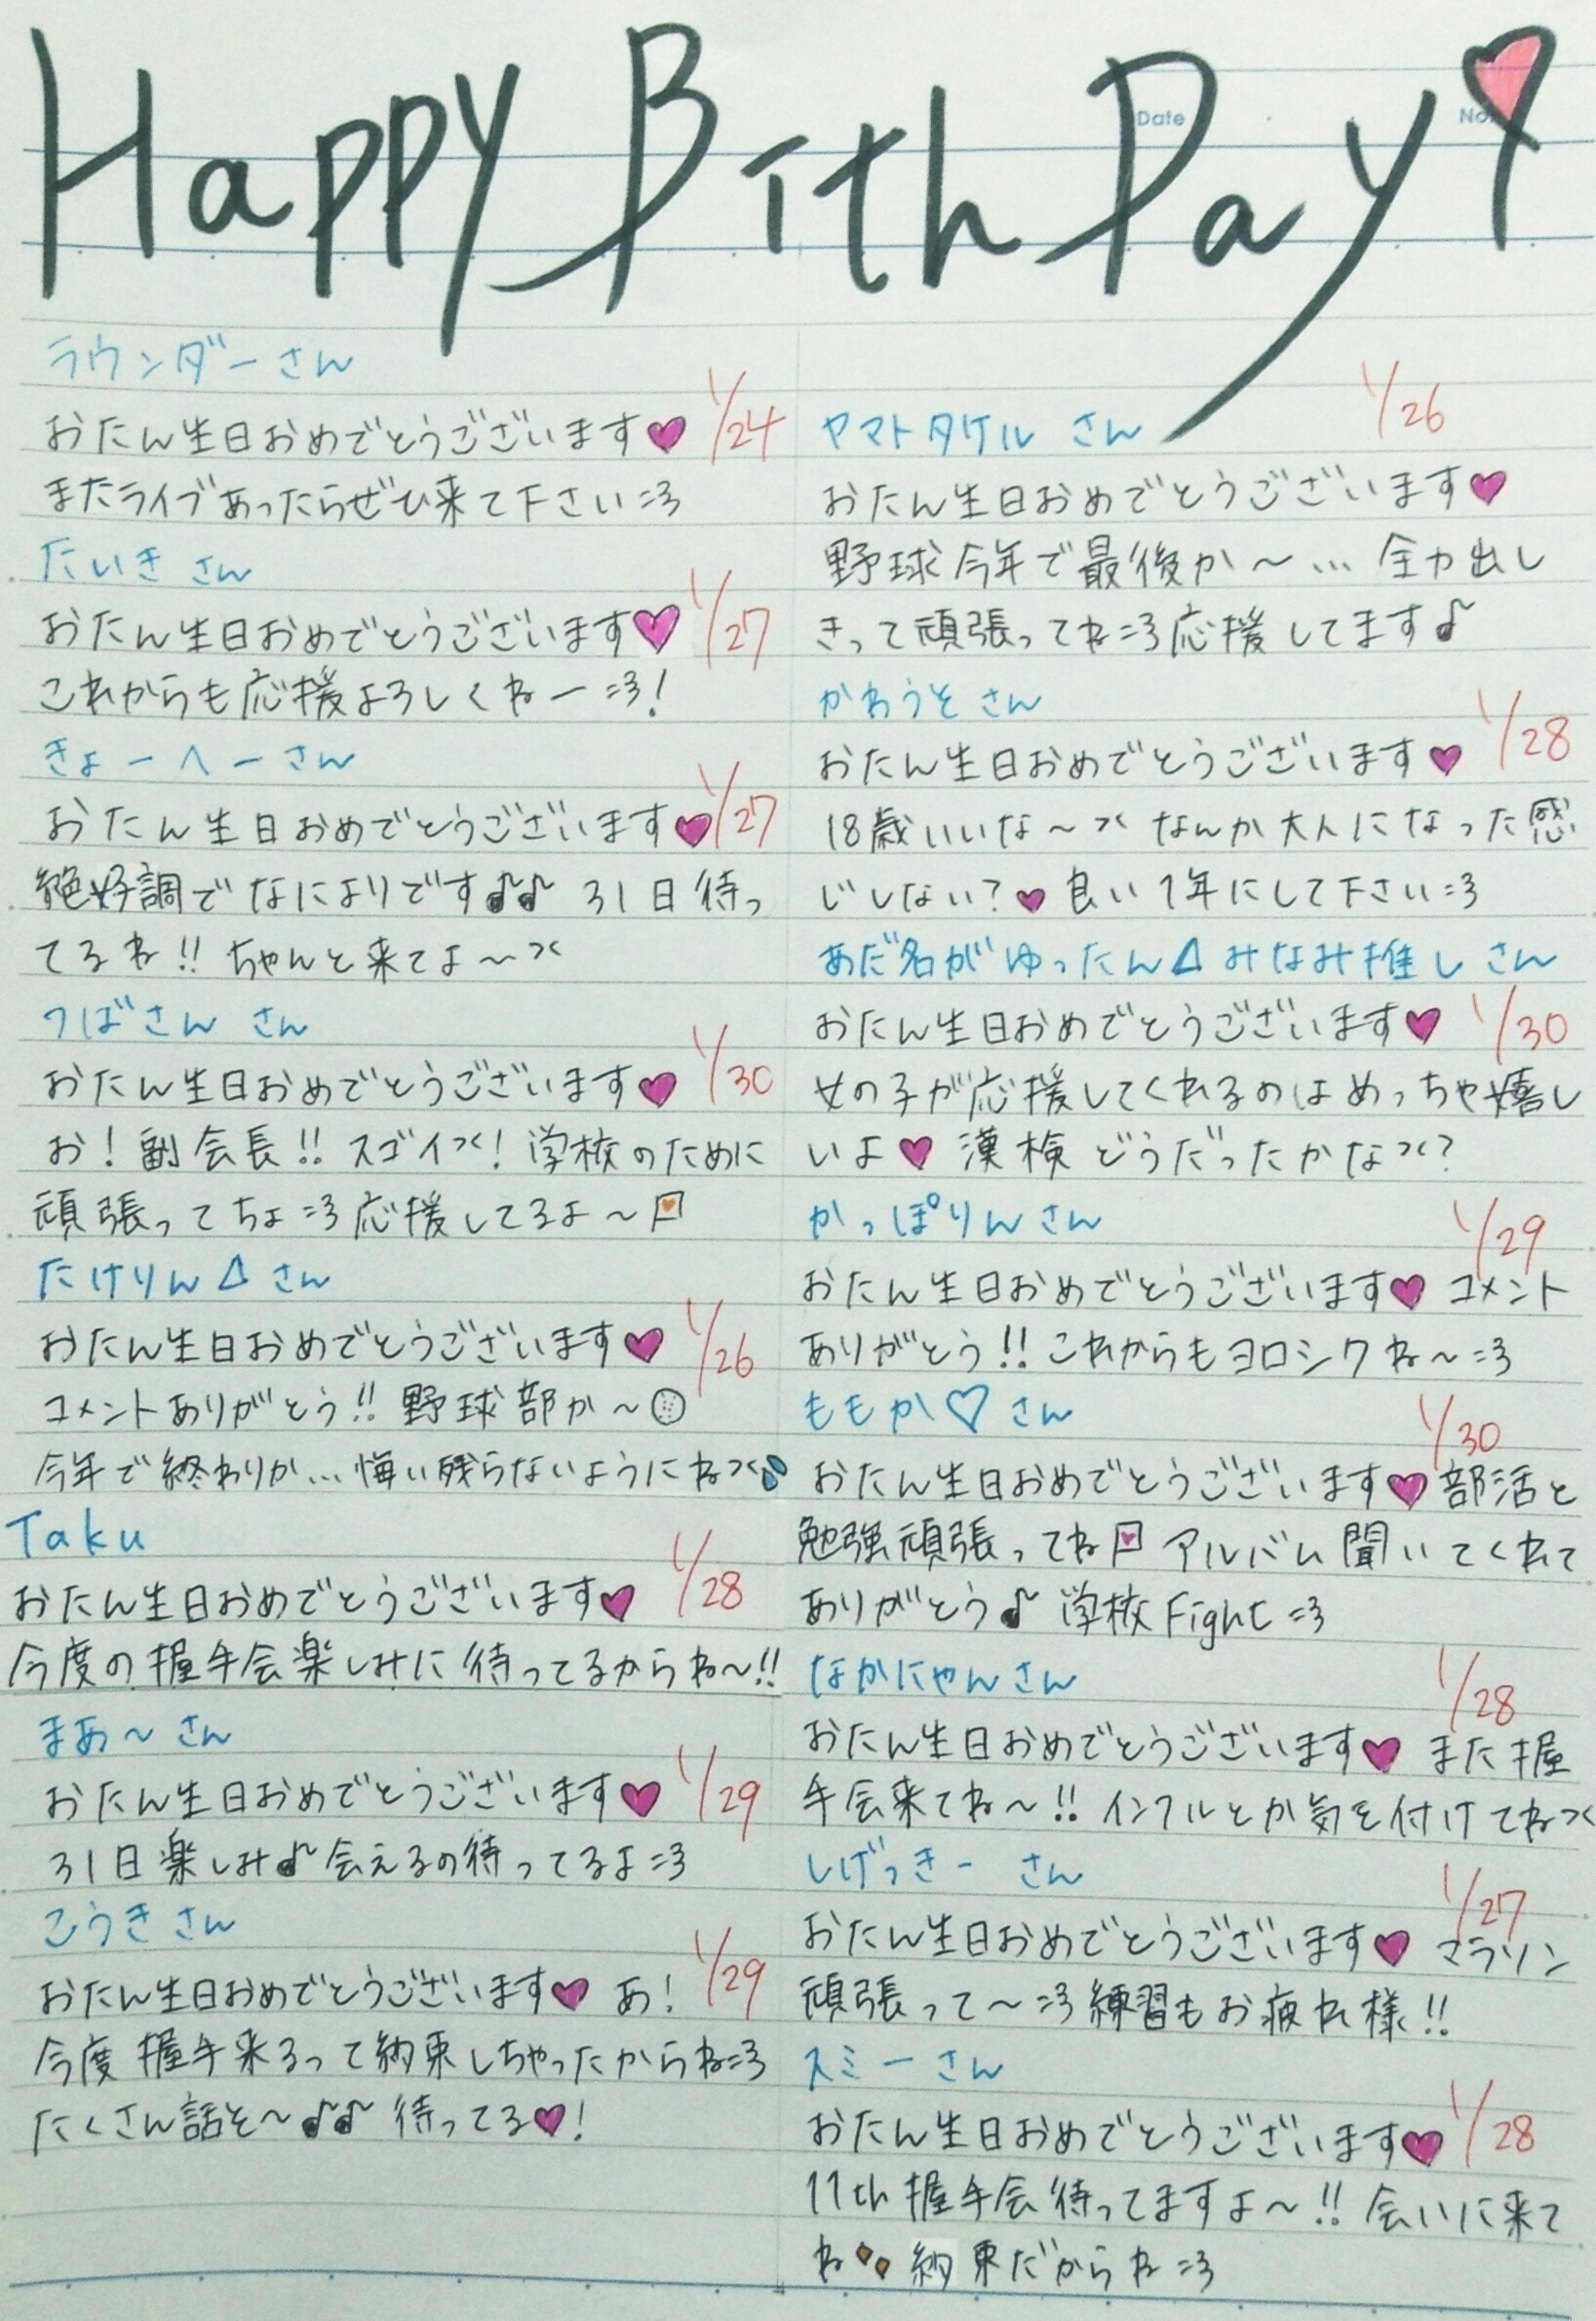 Happy BithDay!
Date
No.
ラウンダーさん
おたん生日おめでとうございます♥ 1/24
またライブあったらぜひ来て下さい=3
たいき さん
おたん生日おめでとうございます♥ 1/27
これからも応援よろしくねー=3!
きょーへーさん
おたん生日おめでとうございます♥ 1/27
絶好調でなによりです♪♪ 31日待っ
てるね!! ちゃんと来てよ〜><
つばさん さん
おたん生日おめでとうございます♥ 1/30
お!副会長!! スゴイ><! 学校のために
頑張ってちょ=3応援してるよ〜
たけりん△ さん
おたん生日おめでとうございます♥ 1/26
コメントありがとう!! 野球部か〜
今年で終わりか...悔い残らないようにね><
Taku
おたん生日おめでとうございます♥ 1/28
今度の握手会楽しみに待ってるからね〜!!
まあ〜 さん
おたん生日おめでとうございます♥ 1/29
31日楽しみ♪会えるの待ってるよ=3
こうき さん
おたん生日おめでとうございます♥ あ! 1/29
今度握手来るって約束しちゃったからね=3
たくさん話そ〜♪♪ 待ってる♥!
ヤマトタケル さん 1/26
おたん生日おめでとうございます♥
野球今年で最後か〜... 全力出し
きって頑張ってね=3応援してます♪
かわうそ さん
おたん生日おめでとうございます♥ 1/28
18歳いいな〜>< なんか大人になった感
じしない?♥ 良い1年にして下さい=3
あだ名がゆったん△みなみ推し さん
おたん生日おめでとうございます♥ 1/30
女の子が応援してくれるのはめっちゃ嬉し
いよ♥ 漢検どうだったかな><?
かっぽりんさん 1/29
おたん生日おめでとうございます♥ コメント
ありがとう!! これからもヨロシクね〜=3
ももか♡ さん 1/30
おたん生日おめでとうございます♥ 部活と
勉強頑張ってね アルバム聞いてくれて
ありがとう♪ 学校Fight=3
なかにゃんさん 1/28
おたん生日おめでとうございます♥ また握
手会来てね〜!! インフルとか気を付けてね><
しげっきー さん 1/27
おたん生日おめでとうございます♥ マラソン
頑張って〜=3練習もお疲れ様!!
スミーさん
おたん生日おめでとうございます♥ 1/28
11th握手会待ってますよ〜!! 会いに来て
ね 約束だからね=3